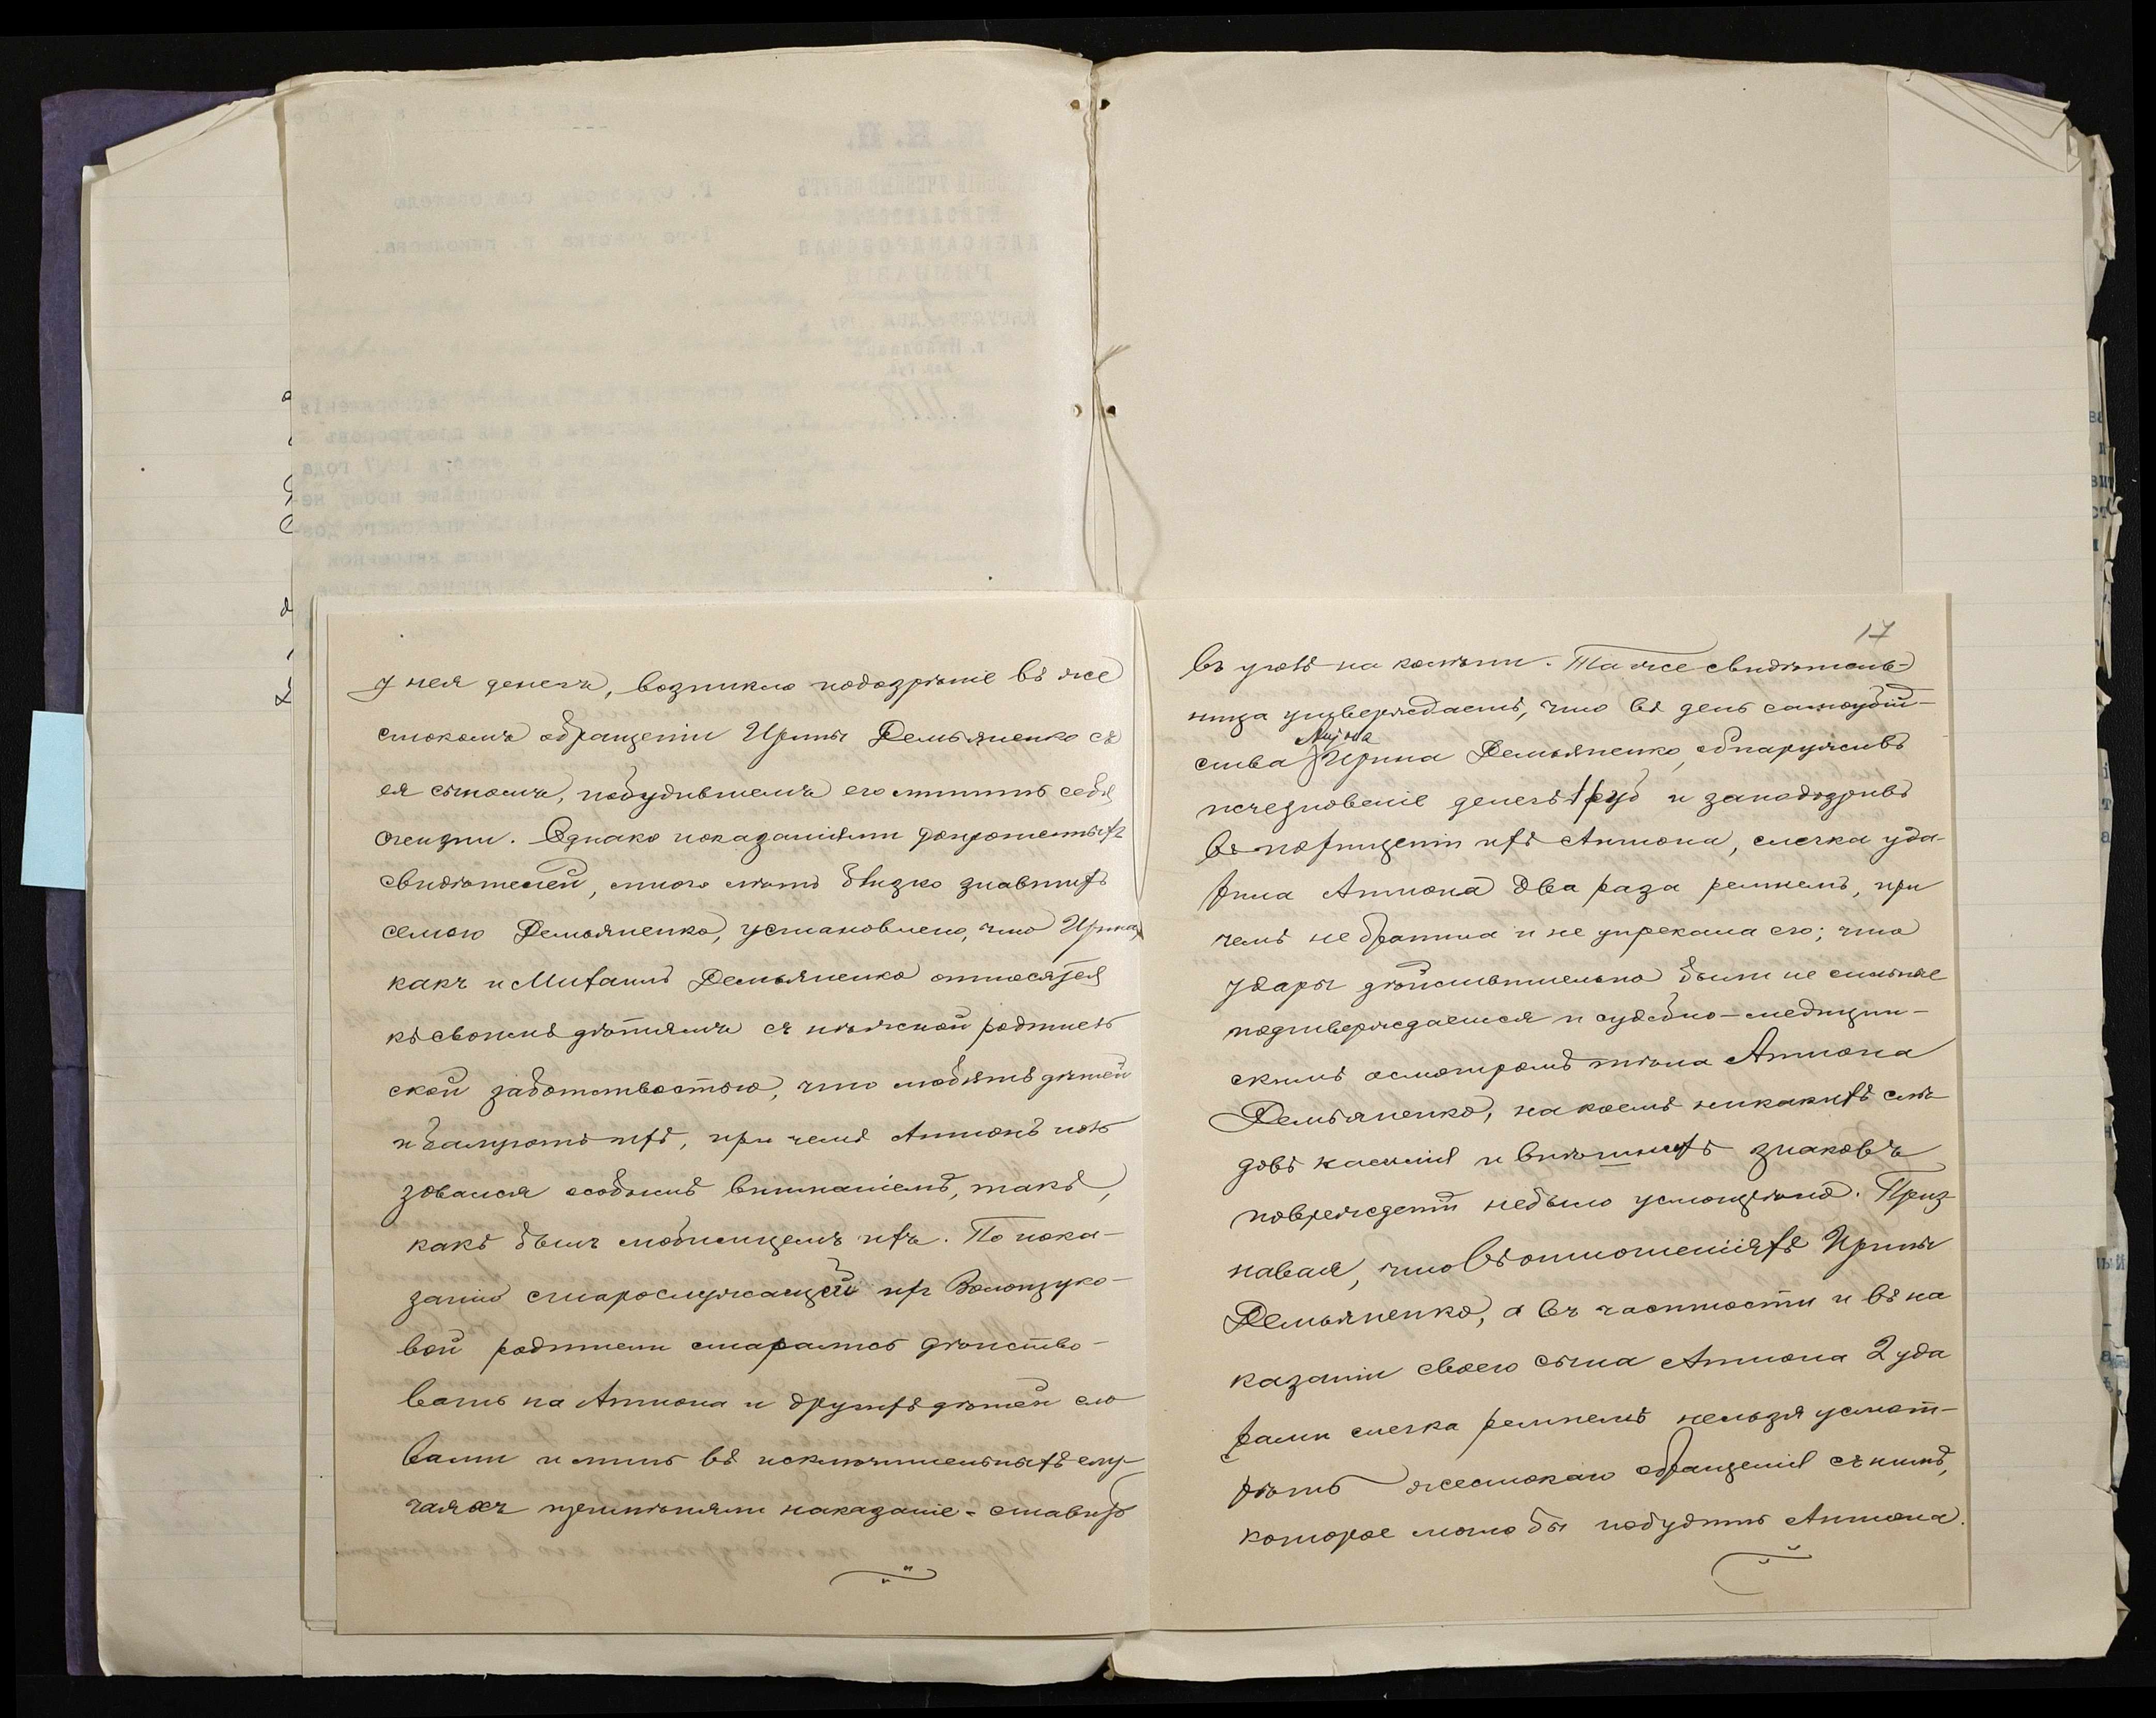 у нея денегъ, возникло подозрѣніе въ же
стокомъ обращеніи Ирины Демьяненко съ
ея сыномъ, побудившемъ его лишить себя
жизни. Однако показаніями допрошенныхъ
свидѣтелей, много лѣтъ близко знавшихъ
семью Демьяненко, установлено, что Ирина,
какъ и Михаилъ Демьяненко относятся
къ своимъ дѣтямъ съ нѣжной родитель
ской заботливостью, что любятъ дѣтей
и балуютъ ихъ, при чемъ Антонъ поль
зовался особымъ вниманіемъ, такъ,
какъ былъ любимцемъ ихъ. По пока-
занію старослужащей их Волощуко-
вой родители старались дѣйство-
вать на Антона и другихъ дѣтей сло
вами и лишь въ исключительныхъ слу-
чаяхъ примѣняли наказаніе - ставиро
17
въ уголъ на колѣни. Та же свидѣтель-
ница утверждаетъ, что въ день самоубій-
ства Ирина Демьяненко, обнаруживъ
исчезновеніе денегъ 1 руб и заподозривъ
въ похищеніи ихъ Антона, слегка уда-
рила Антона два раза ремнемъ, при
чемъ не бранила и не упрекала его; что
удары дѣйствительно были не сильные
подтверждается и судебно-медицин-
скимъ осмотромъ тѣла Антона
Демьяненко, на коемъ никакихъ слѣ
довъ насилія и внѣшнихъ знаковъ
поврежденій небыло усмотрѣно. Приз
навая, что въ отношеніяхъ Ирины
Демьяненко, а въ частности и въ на
казаніи своего сына Антона 2 уда
рами слегка ремнемъ нельзя усмот-
рѣть жестокаго обращенія съ нимъ,
которое могло бы побудить Антона
М. Н. П.
Г. Судебному слѣдователю
1-го участка г. Николаева.
АЛЕКСАНДРОВСКАЯ
ГИМНАЗІЯ
г. Николаевъ